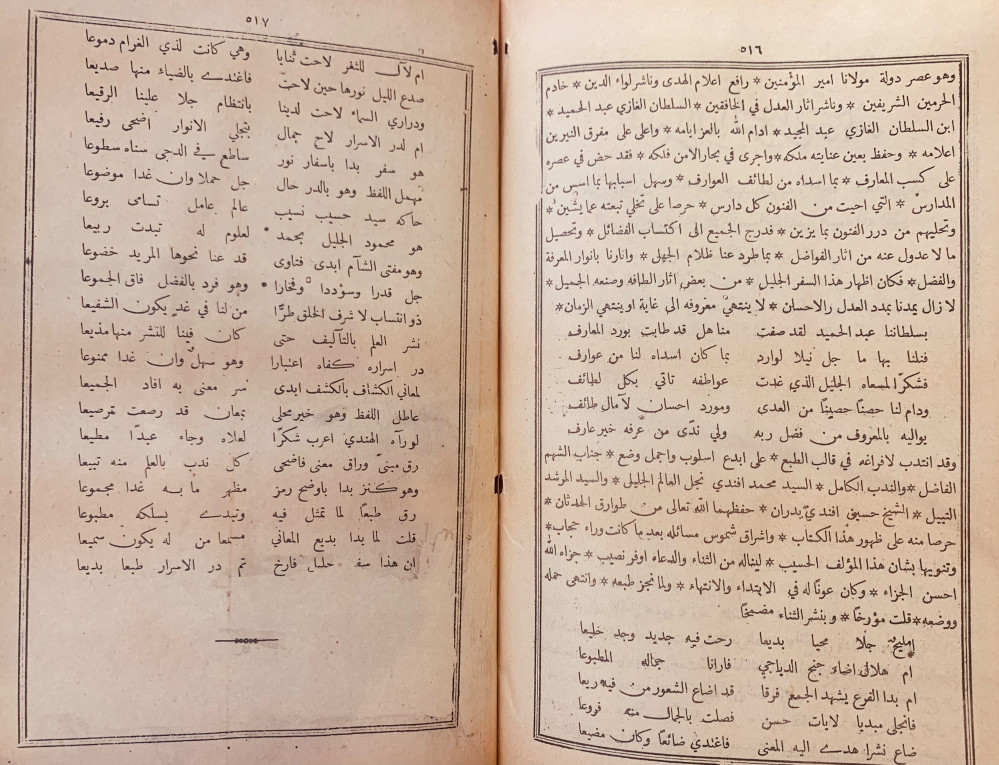 ٥١٦
وهو عصر دولة مولانا امير المؤمنين * رافع اعلام الهدى وناشر لواء الدين * خادم
الحرمين الشريفين * وناشر اثار العدل في الخافقين * السلطان الغازي عبد الحميد *
ابن السلطان الغازي عبد المجيد * ادام الله بالعز ايامه * واعلى على مفرق النيرين
اعلامه * وحفظ بعين عنايته ملكه * واجرى في بحار الامن فلكه * فقد حض في عصره
على كسب المعارف * بما اسداه من لطائف العوارف * وسهل اسبابها بما اسس من
المدارس * التي احيت من الفنون كل دارس * حرصا على تخلي تبعته عما يشين *
وتحليهم من درر الفنون بما يزين * فدرج الجميع الى اكتساب الفضائل * وتحصيل
ما لا عدول عنه من اثار الفواضل * بما طرد عنا ظلام الجهل * وانارنا بانوار المعرفة
والفضل * فكان اظهار هذا السفر الجليل * من بعض اثار الطافه وصنعه الجميل *
لا زال يمدنا بمدد العدل والاحسان * لا ينتهي معروفه الى غاية او ينتهي الزمان *
بسلطاننا عبد الحميد لقد صفت مناهل قد طابت بورد المعارف
فنلنا بها ما جل نيلا لوارد بما كان اسداه لنا من عوارف
فشكرًا لمسعاه الجليل الذي غدت عواطفه تاتي بكل لطائف
ودام لنا حصنًا حصينًا من العدى ومورد احسان لآمال طائف
يواليه بالمعروف من فضل ربه ولي ندًى من عرفه خير عارف
وقد انتدب لافراغه في قالب الطبع * على ابدع اسلوب واجمل وضع * جناب الشهم
الفاضل * والندب الكامل * السيد محمد افندي نجل العالم الجليل * والسيد المرشد
النبيل * الشيخ حسين افندي بدران * حفظهما الله تعالى من طوارق الحدثان *
حرصا منه على ظهور هذا الكتاب * واشراق شموس مسائله بعد ما كانت وراء حجاب *
وتنويها بشان هذا المؤلف الحسيب * ليناله من الثناء والدعاء اوفر نصيب * جزاه الله
احسن الجزاء * وكان عونًا له في الابتداء والانتهاء * ولما نجز طبعه * وانتهى حمله
ووضعه * قلت مؤرخًا * وبنشر الثناء مضمخًا
امليح جلا محيا بديعا رحت فيه جديد وجد خليعا
ام هلال اضاء جنح الدياجي فارانا جماله المطبوعا
ام بدا الفرع يشهد الجمع فرقا قد اضاع الشعور من فيه ريعا
فانجلى مبديا لايات حسن فصلت بالجمال منه فروعا
ضاع نشرا هدى اليه المعنى فاغتدي ضائعًا وكان مضيعا
٥١٧
ام لآل للثغر لاحت ثنايا وهي كانت لذي الغرام دموعا
صدع الليل نورها حين لاحت فاغتدى بالضياء منها صديعا
ودراري السماء لاحت لدينا بانتظام جلا علينا الرقيعا
ام لدر الاسرار لاح جمال بتجلي الانوار اضحى رفيعا
هو سفر بدا باسفار نور ساطع في الدجى سناه سطوعا
مهمل اللفظ وهو بالدر حال جل حملا وان غدا موضوعا
حاكه سيد حسيب نسيب عالم عامل تسامى بروعا
هو محمود الجليل بحمد لعلوم له تبدت ربيعا
وهو مفتي الشآم ابدى فتاوى قد عنا نحوها المريد خضوعا
جل قدرا وسؤددا وفخارا وهو فرد بالفضل فاق الجموعا
ذو انتساب لاشرف الخلق طرًّا من لنا في غد يكون الشفيعا
نشر العلم بالتآليف حتى كان فينا للنشر منها مذيعا
در اسراره كفاه اعتبارا وهو سهل وان غدا ممنوعا
لمعاني الكشاف بالكشف ابدى سر معنى به افاد الجميعا
عاطل اللفظ وهو خير محلى بمعان قد رصعت ترصيعا
لو رآه الهندي اعرب شكرًا لعلاه وجاء عبدًا مطيعا
رق مبنى وراق معنى فاضحى كل ندب بالعلم منه تبيعا
وهو كنز بدا باوضح رمز مظهر ما به غدا مجموعا
رق طبعًا لما تمثل فيه وتبدى بسلكه مطبوعا
قلت لما بدا بديع المعاني مسمعا من له يكون سميعا
ان هذا سفر جليل فارخ تم در الاسرار طبعا بديعا